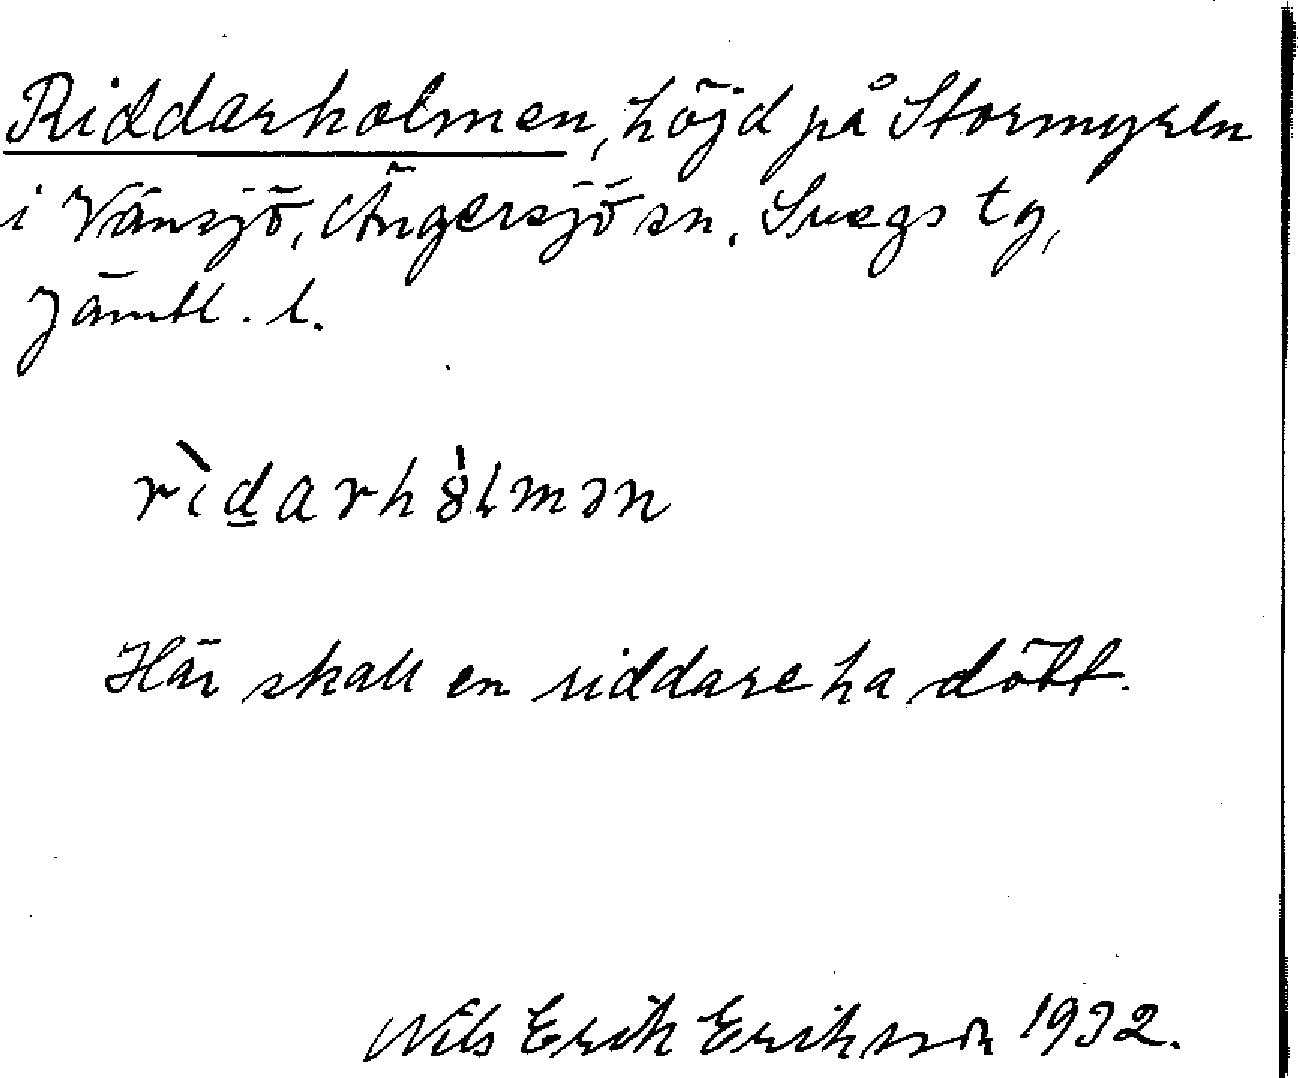 Riddarholmen, höjd på Stormyren
i Vänsjö, Ängersjö sn. Svegs tg,
Jämtl. l.
rìd̲arhȣ̍lmən
Här skall en riddare ha dött.
Nils Erik Eriksson 1932.